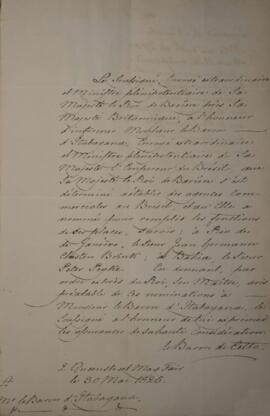 Le Soussigné, Envoyé extraordinaire
et Ministre plénipotentiaire de Sa
Majesté le Roi de Bavière près Sa
Majesté Britannique, a l'honneur
d'informer Monsieur le Baron
d'Itabayana, Envoyé extraordinaire
et Ministre plénipotentiaire de Sa
Majesté l'Empereur du Brésil, que
Sa Majesté le Roi de Bavière s'est
déterminé d'établir des agents com-
merciales au Brésil et qu'Elle a
nommé pour remplir les fonctions
de ces places, savoir: à Rio de
de Janeiro, le Sieur Jean Hermann
Christen; à Bahia le Sieur
Peter En donnant, par
ordre exprès du Roi, Son Maître, avis
préalable de ces nominations à
Monsieur le Baron d'Itabayana, le
Soussigné a l'honneur de Lui exprimer
les assurances de sa haute considération.
le Baron de Cetto
2. Queenstreet May Fair
le 30 Mai 1826.
Mr. le Baron d'Itabayana.